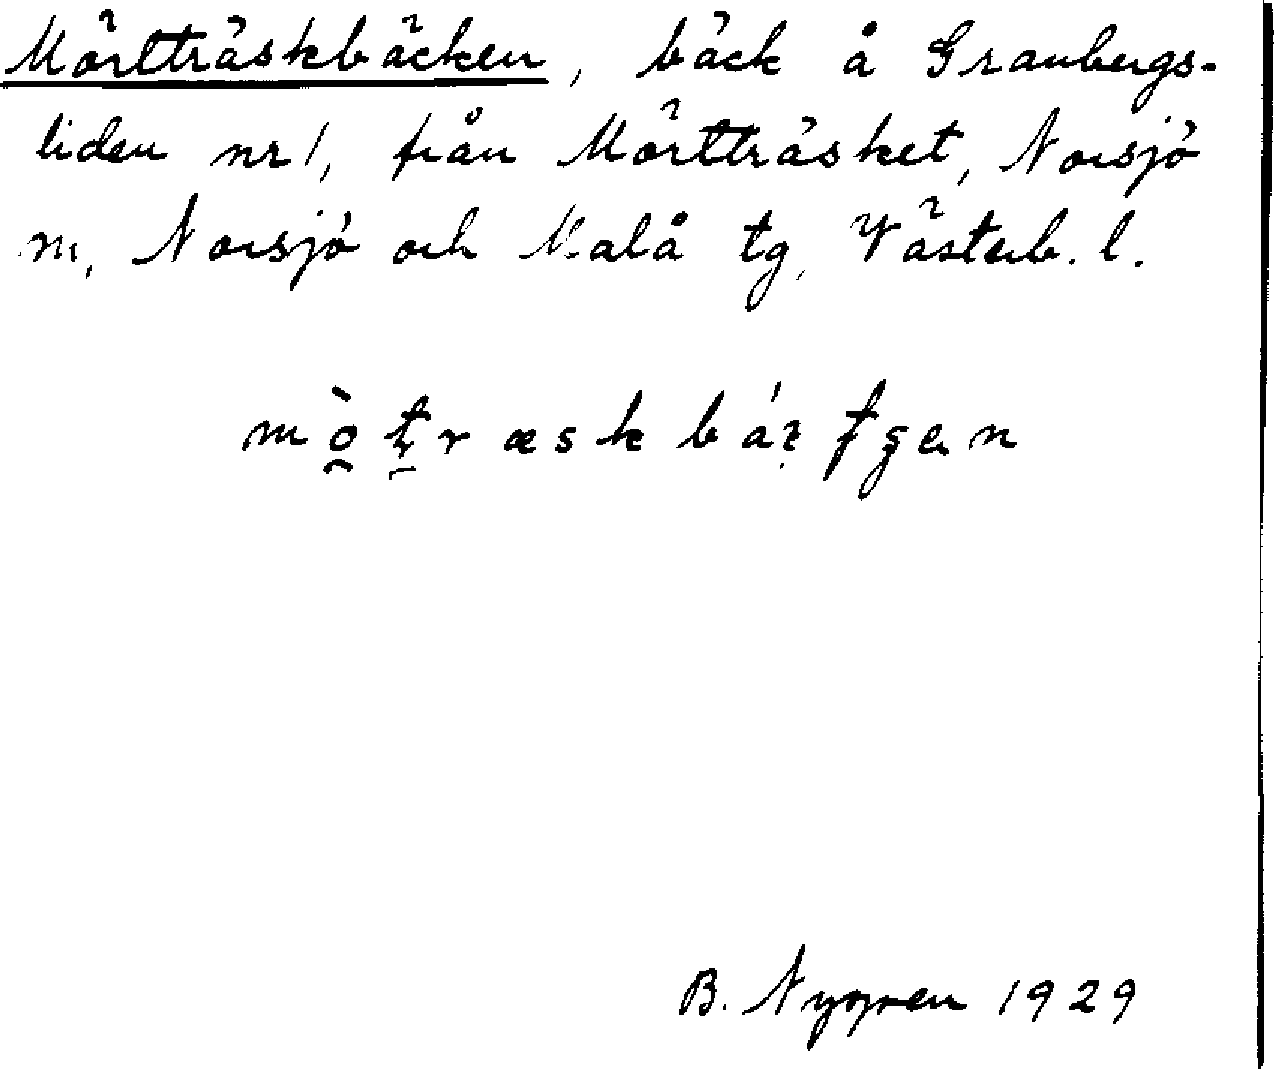 Mörtträskbäcken, bäck å Granbergs-
liden nr 1, från Mörtträsket, Norsjö
m, Norsjö och Malå tg, Västerb. l.
B. Nygren 1929